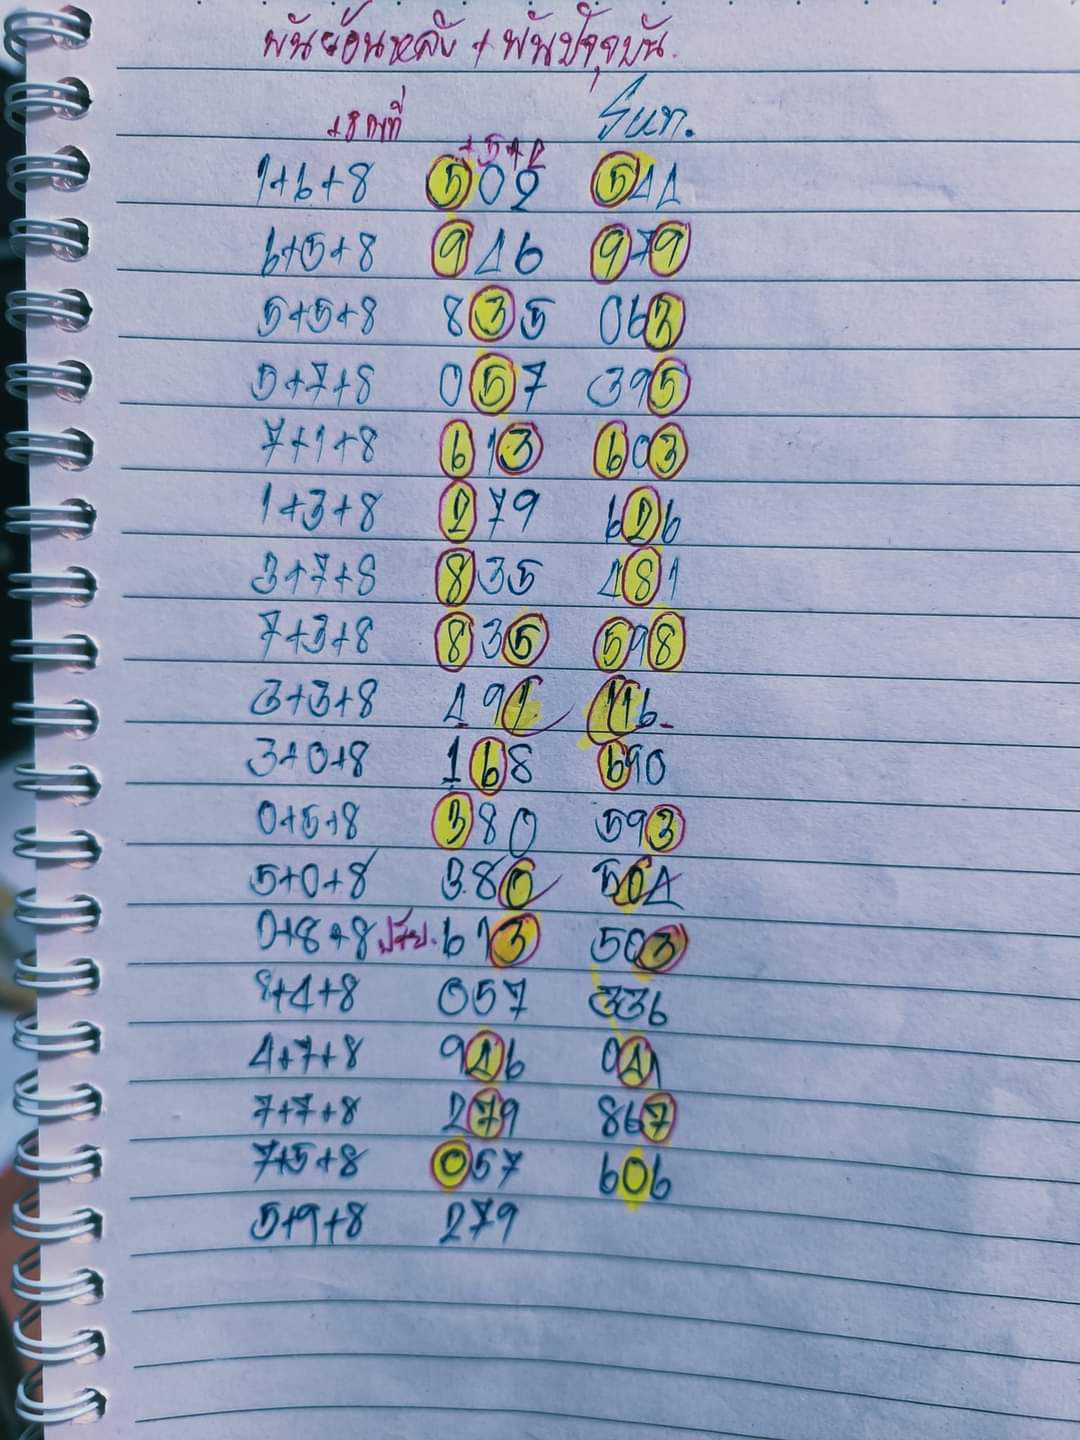 พันย้อนหลัง + พันปัจจุบัน.
+8 คงที่
+5+2
1+6+8 502 544
6+5+8 946 979
5+5+8 835 063
5+7+8 057 395
7+1+8 613 603
1+3+8 279 626
3+7+8 835 481
7+3+8 835 598
3+3+8 491 116
3+0+8 168 690
0+5+8 380 593
5+0+8 380 504
0+8+8 613 503
8+4+8 057 336
4+7+8 946 041
7+7+8 279 867
7+5+8 057 606
5+9+8 279